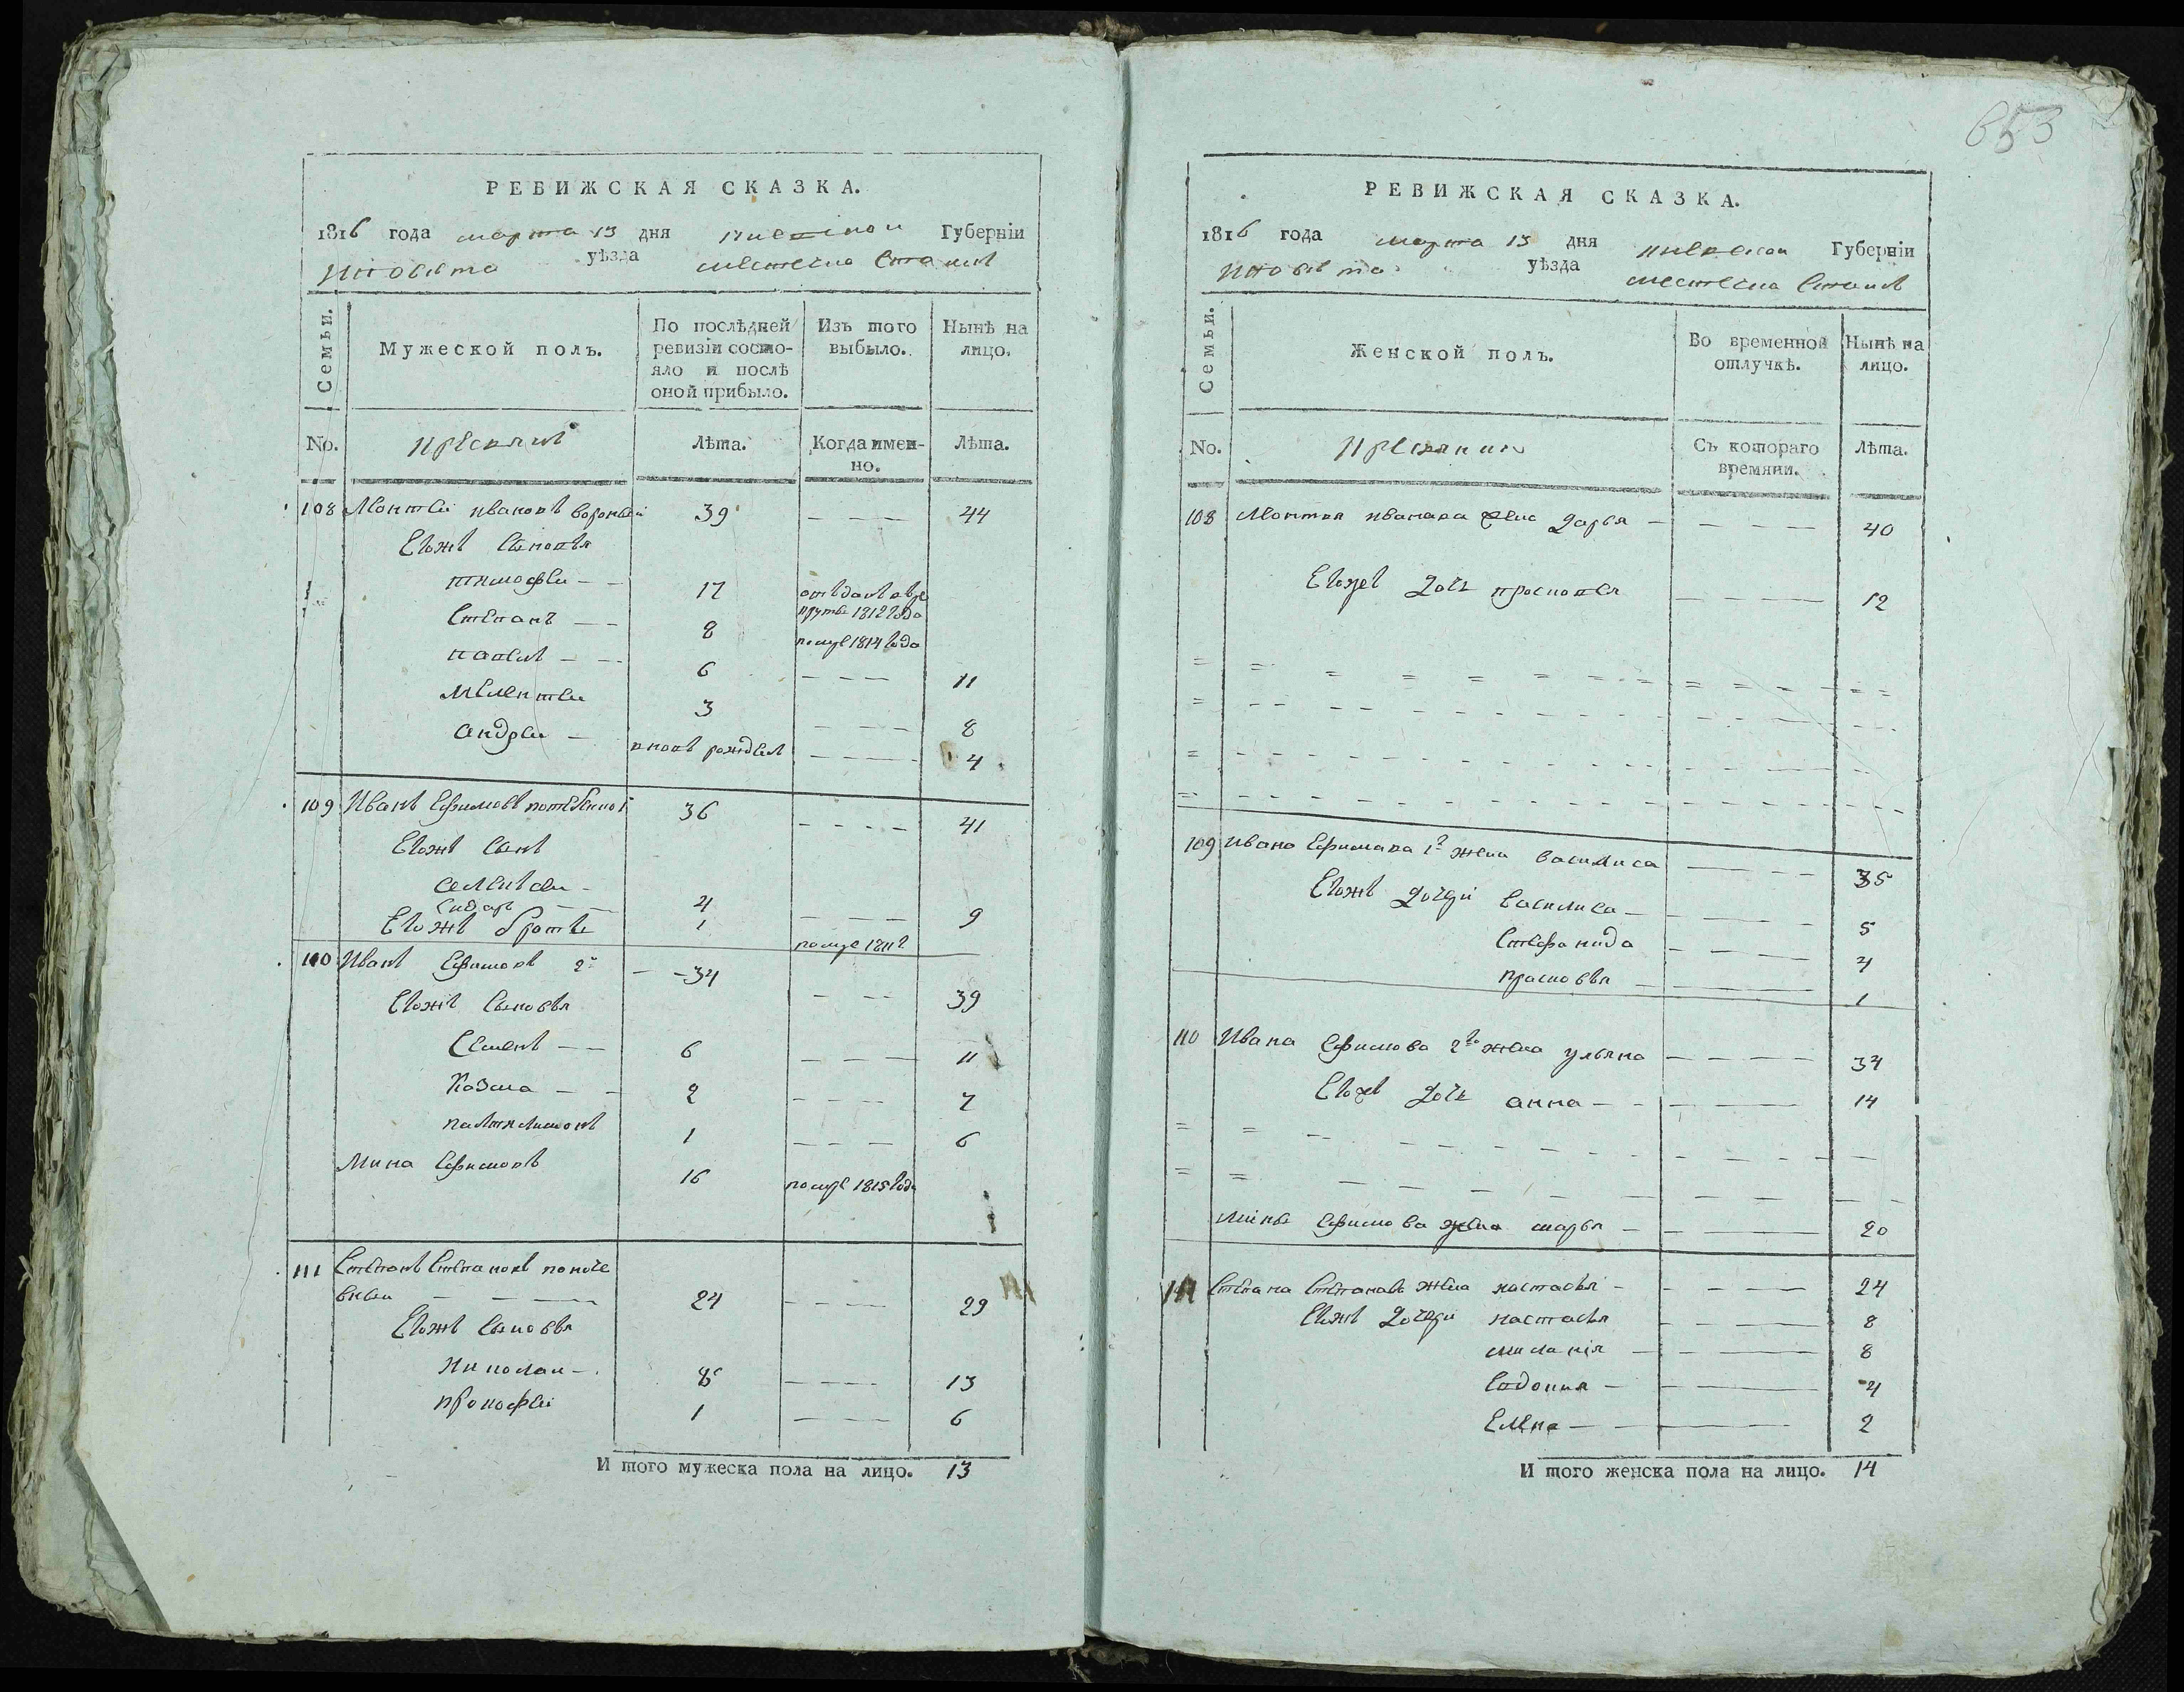 653
РЕВИЖСКАЯ СКАЗКА.
1816 года марта 13 дня Киевской Губерніи
уѣзда местечка
Семьи.
Мужеской полъ.
По послѣдней ревизіи состояло и послѣ оной прибыло.
Изъ того выбыло.
Нынѣ на лицо.
No.
Лѣта.
Когда имен-но.
Лѣта.
108 ивановъ 39 — — — 44
Егожъ Сыновья
тимофеи — — 17 1812 года
Степанъ — — 8 помре 1814 года
павелъ — — 6 — — — 11
Мелентеи 3 — — — 8
андреи — вновь рожденъ — — — 4
109 Иванъ Ефимовъ 36 — — — 41
Егожъ Сынъ
4 — — — 9
Сидоръ — 1 помре 1811 г
Егожъ братъ
110 Иванъ Ефимовъ 2й — — 34 — — 39
Егожъ Сыновья
Семенъ — — 6 — — — 11
Козма — — 2 — — — 7
1 — — — 6
Мина Ефимовъ 16 помре 1815 года
111 Степанъ Степановъ
— — — 24 — — — 29
Егожъ Сыновья
Николаи — 8 — — — 13
прокофеи 1 — — — 6
И того мужеска пола на лицо. 13
РЕВИЖСКАЯ СКАЗКА.
1816 года марта 13 дня Киевской Губерніи
уѣзда местечка
Семьи.
Женской полъ.
Во временной отлучкѣ.
Нынѣ на лицо.
No.
Съ котораго времяни.
Лѣта.
108 иванова жена дарья — — — — 40
Егожъ дочь прасковья — — — 12
109 Ивана Ефимова 1го жена василиса — — — 35
Егожъ дочери василиса — — — 5
Стефанида — — — 4
прасковья — — 1
110 Ивана Ефимова 2го жена ульяна — — — — 34
Егожъ дочь анна — — — — 14
мины Ефимова жена марья — — — 20
111 Степана Степанова жена настасья — — — — 24
Егожъ дочери настасья — — — 8
миланія — — — 8
Евдокия — — — 4
Елена — — — 2
И того женска пола на лицо. 14